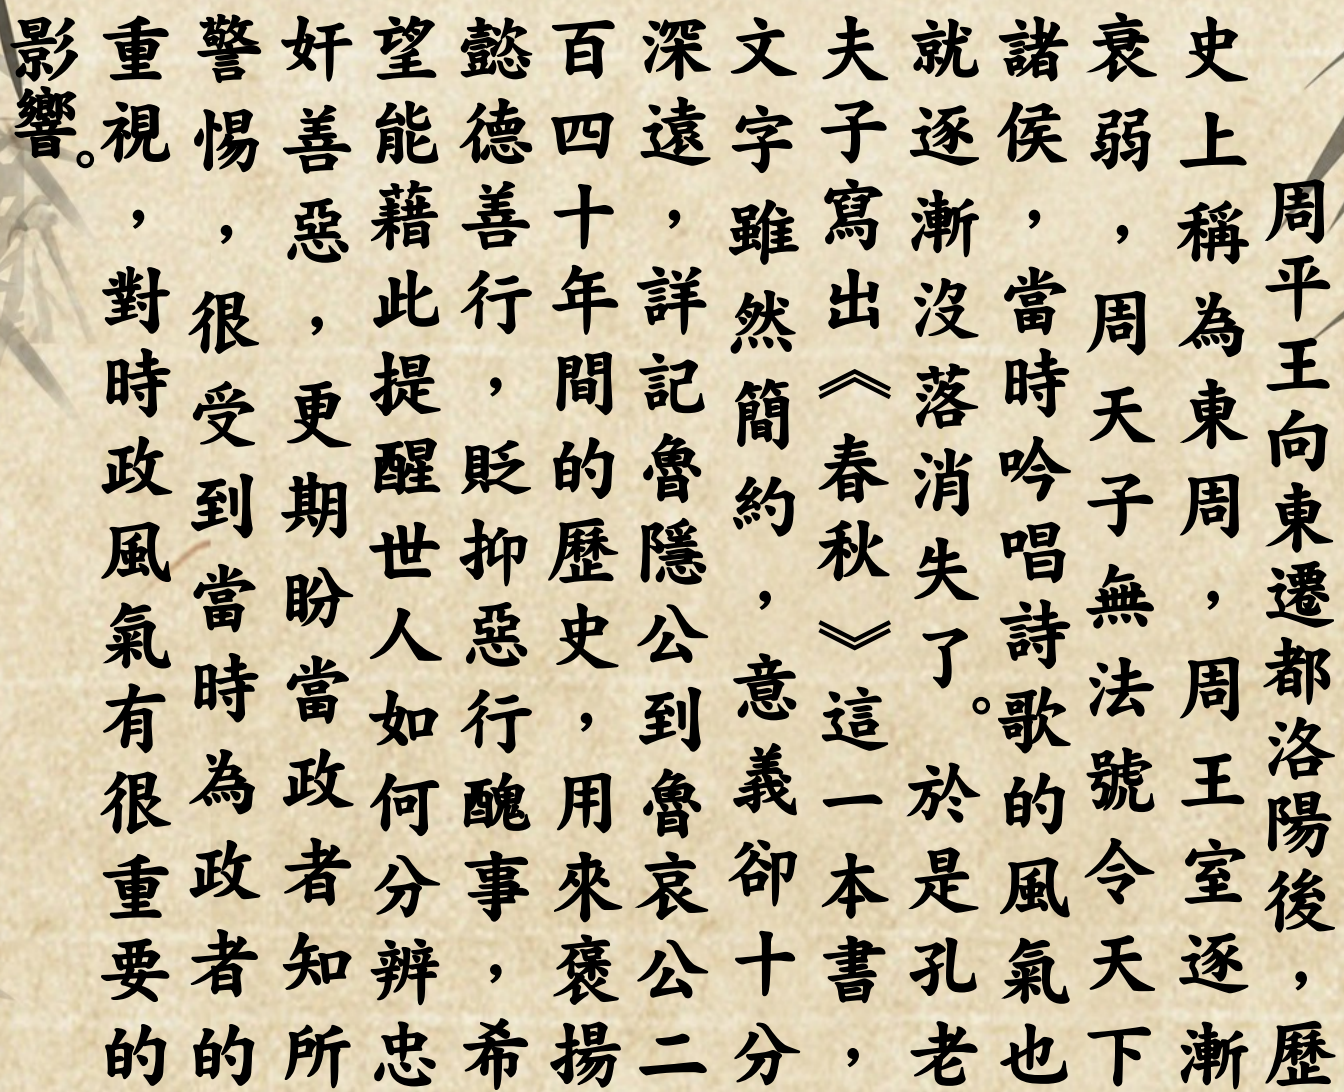 周平王向東遷都洛陽後，歷
史上稱為東周，周王室逐漸
衰弱，周天子無法號令天下
諸侯，當時吟唱詩歌的風氣也
就逐漸沒落消失了。於是孔老
夫子寫出《春秋》這一本書，
文字雖然簡約，意義卻十分
深遠，詳記魯隱公到魯哀公二
百四十年間的歷史，用來褒揚
懿德善行，貶抑惡行醜事，希
望能藉此提醒世人如何分辨忠
奸善惡，更期盼當政者知所
警惕，很受到當時為政者的
重視，對時政風氣有很重要的
影響。